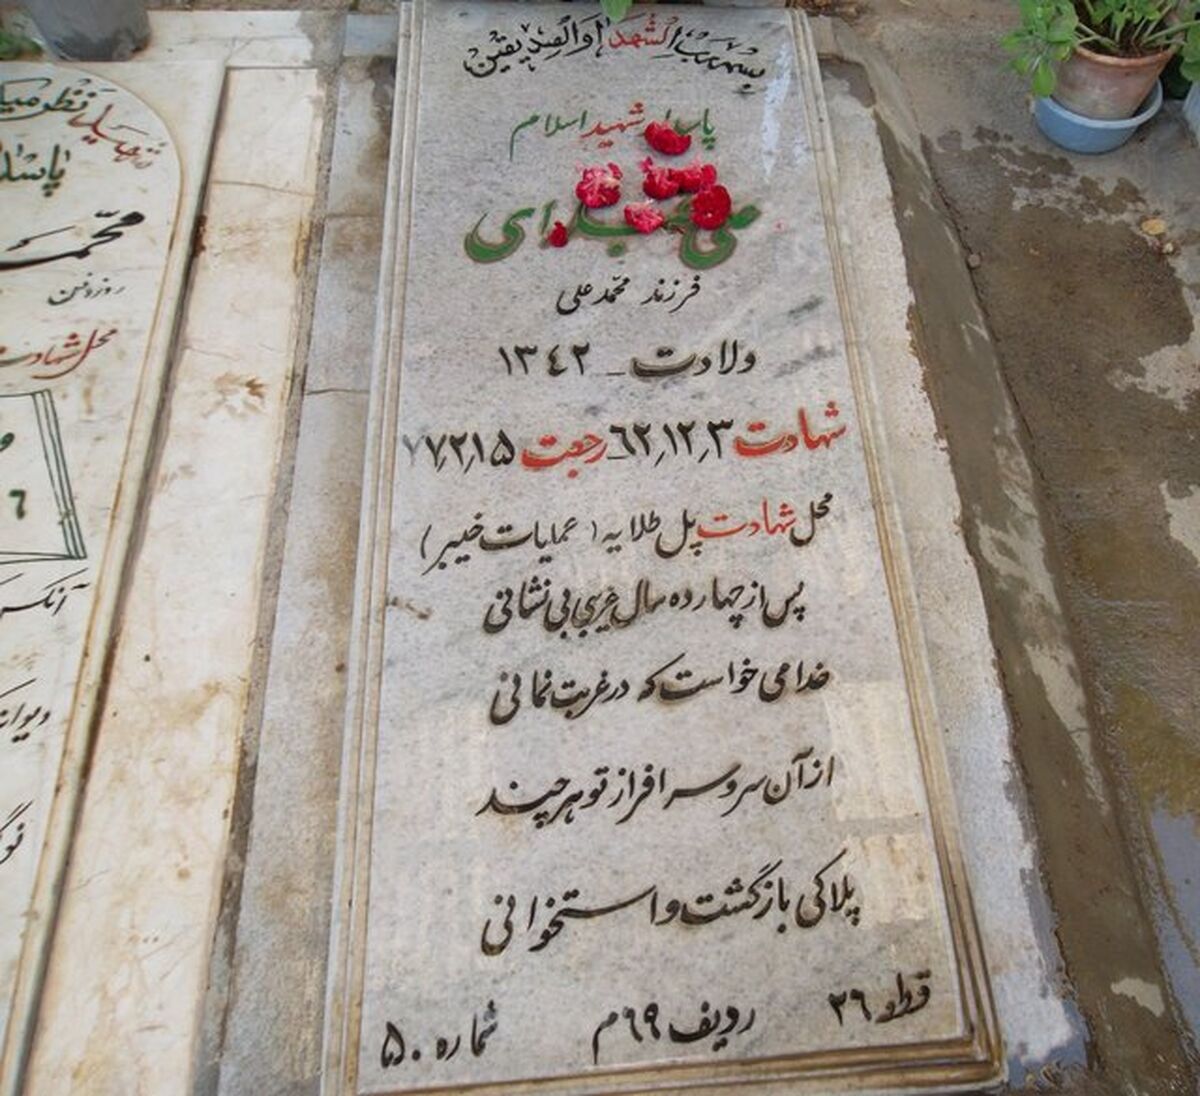 بسم رب الشهدا و الصدیقین
پاسدار شهید اسلام
علی
فرزند محمد علی
ولادت _ ۱۳۴۲
شهادت ۶۲٫۱۲٫۳_ رجعت ۷۷٫۲٫۱۵
محل شهادت پل طلایه (عملیات خیبر)
پس از چهارده سال غریبی بی نشانی
خدا می خواست که در غربت نمانی
از آن سرو سرافراز تو هر چند
پلاکی بازگشت و استخوانی
قطعه ۳۶ ردیف ۶۹م شماره ۵۰
محمد
روز دفن
محل شهادت
۶